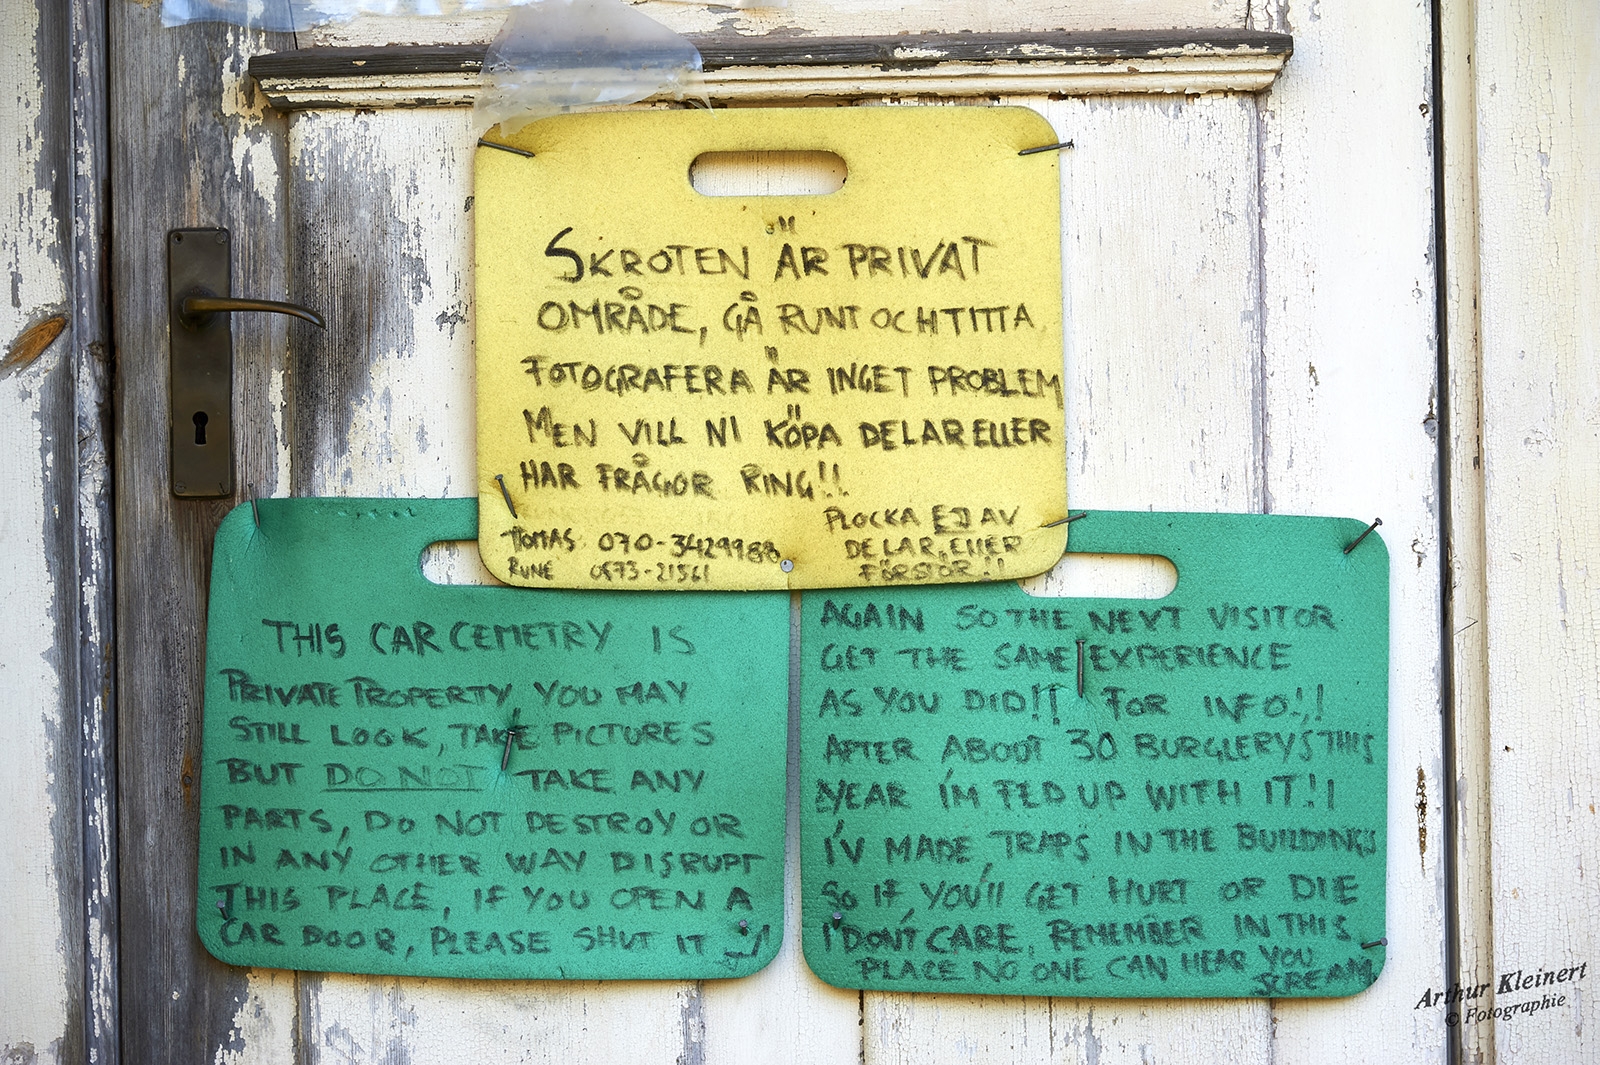 SKROTEN ÄR PRIVAT
OMRÅDE, GÅ RUNT OCH TITTA
FOTOGRAFERA ÄR INGET PROBLEM
MEN VILL NI KÖPA DELAR ELLER
HAR FRÅGOR RING!!
PLOCKA EJ AV
DELAR, ELLER
FÖRSTÖR!!
THOMAS 070-3429988
RUNE 0573-21561
THIS CAR CEMETRY IS
PRIVATE PROPERTY, YOU MAY
STILL LOOK, TAKE PICTURES
BUT DO NOT TAKE ANY
PARTS, DO NOT DESTROY OR
IN ANY OTHER WAY DISRUPT
THIS PLACE, IF YOU OPEN A
CAR DOOR, PLEASE SHUT IT
AGAIN SO THE NEXT VISITOR
GET THE SAME EXPERIENCE
AS YOU DID!! FOR INFO!!
AFTER ABOUT 30 BURGLERYS THIS
YEAR I'M FED UP WITH IT!!
I'V MADE TRAPS IN THE BUILDINGS
SO IF YOU'll GET HURT OR DIE
I DON'T CARE, REMEMBER IN THIS
PLACE NO ONE CAN HEAR YOU
SCREAM,
Arthur Kleinert
© Fotographie